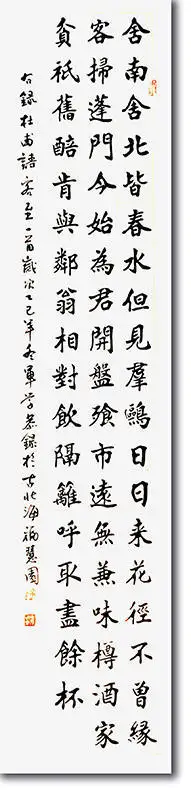 舍南舍北皆春水但見羣鷗日日来花徑不曾緣
客掃蓬門今始為君開盤飧市遠無兼味樽酒家
貧祇舊醅肯與鄰翁相對飲隔籬呼取盡餘杯
右錄杜甫詩客至一首歲次乙巳年冬軍学恭錄於古北海福慧園